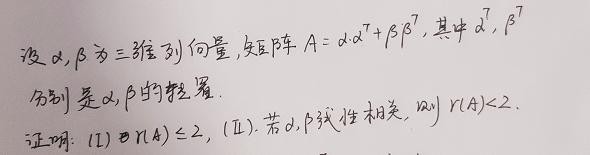 设α,β为三维列向量,矩阵A=α·α^T+ββ^T,其中α^T,β^T
分别是α,β的转置.
证明:(I) r(A)≤2, (II).若α,β线性相关,则r(A)<2.